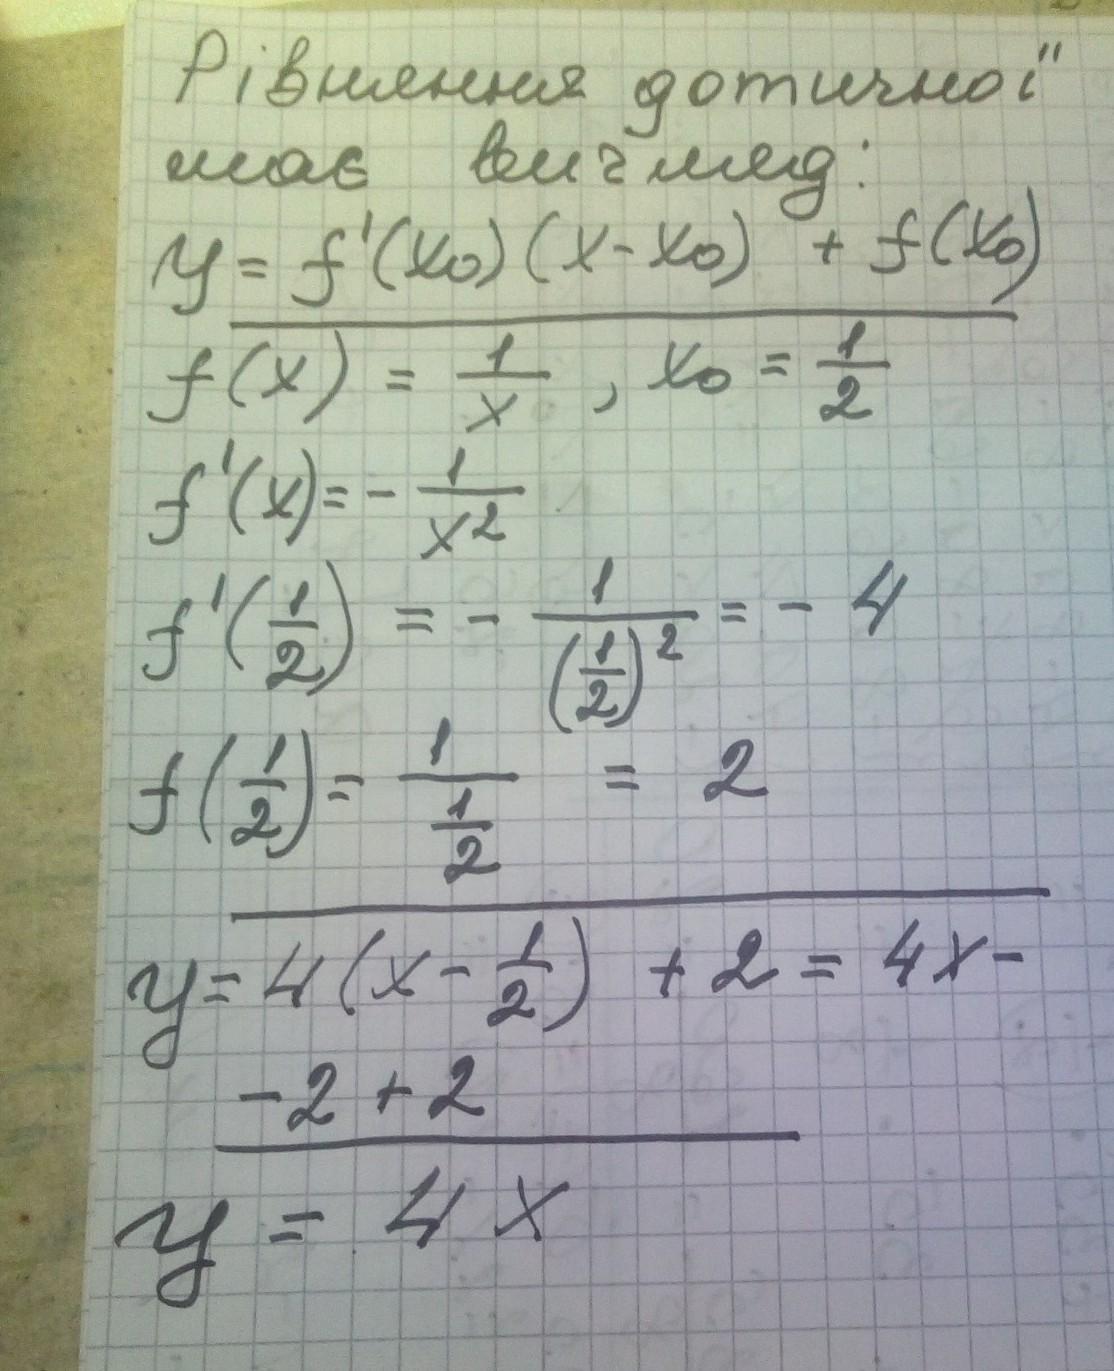 Рівняння дотичної
має вигляд:
y = f'(x₀)(x - x₀) + f(x₀)
f(x) = 1/x , x₀ = 1/2
f'(x) = - 1/x²
f'(1/2) = - 1/(1/2)² = - 4
f(1/2) = 1/(1/2) = 2
y = 4(x - 1/2) + 2 = 4x -
- 2 + 2
y = 4x